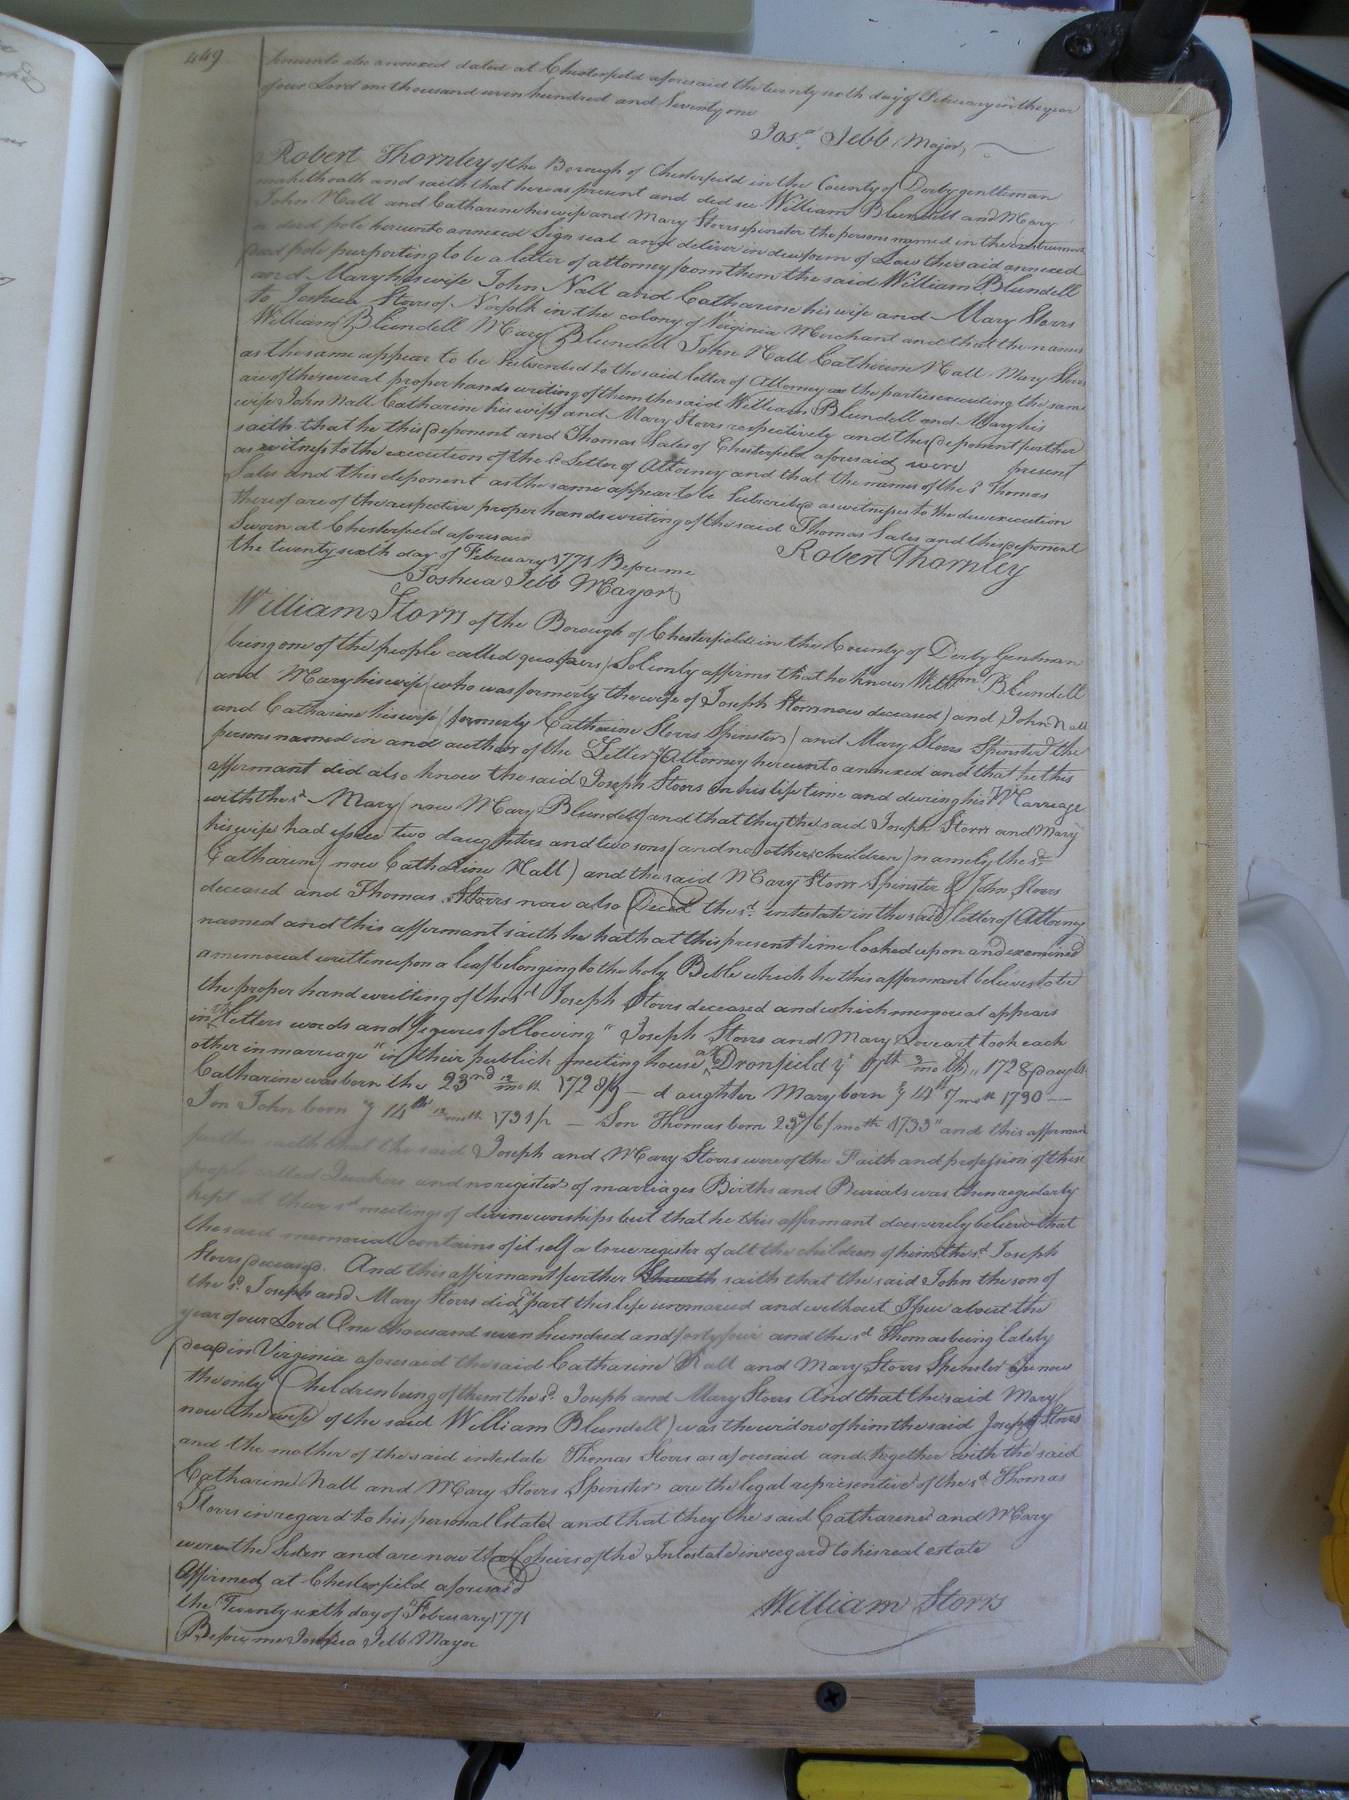 449
hereunto also annexed dated at Chesterfield aforesaid the twenty sixth day of February in the year
of our Lord one thousand seven hundred and Seventy one
Josa. Jebb Major,
Robert Thornley of the Borough of Chesterfield in the County of Derby gentleman
maketh oath and saith that he was present and did see William Blundell and Mary
John Nall and Catharine his wife and Mary Storrs spinster the persons named in the instrument
or deed pole hereunto annexed Sign seal and deliver in due form of Law the said annexed
deed pole purporting to be a letter of attorney from them the said William Blundell
and Mary his wife John Nall and Catharine his wife and Mary Storrs
to Joshua Storrs of Norfolk in the colony of Virginia Merchant and that the names
William Blundell Mary Blundell John Nall Catharine Nall Mary Storrs
as the same appear to be Subscribed to the said letter of Attorney as the parties executing the same
are of the several proper hands writing of them the said William Blundell and Mary his
wife John Nall Catharine his wife and Mary Storrs respectively and this deponent further
saith that he this deponent and Thomas Sales of Chesterfield aforesaid were present
as witness to the execution of the sd Letter of Attorney and that the names of the sd Thomas
Sales and this deponent as the same appear to be Subscribed as witnesses to the due execution
thereof are of the respective proper hands writing of the said Thomas Sales and this deponent
Sworn at Chesterfield aforesaid
Robert Thornley
the twenty sixth day of February 1771 Before me
Joshua Jebb Mayor
William Storrs of the Borough of Chesterfield in the County of Derby Gentman
being one of the people called quakers) Solemly affirms that he knows Willm Blundell
and Mary his wife (who was formerly the wife of Joseph Storrs now deceased) and John Nall
and Catharine his wife (formerly Catharine Storrs Spinster) and Mary Storrs Spinster the
persons named in and authors of the Letter of Attorney hereunto annexed and that he this
affirmant did also know the said Joseph Storrs in his life time and during his Marriage
with the sd Mary (now Mary Blundell) and that they the said Joseph Storrs and Mary
his wife had issue two daughters and two sons (and no other children) namely the sd
Catharine (now Catharine Nall) and the said Mary Storrs Spinster & John Storrs
deceased and Thomas Storrs now also Deced the sd intestate in the said letter of Attorney
named and this affirmant saith he hath at this present time looked upon and examined
a memorial written upon a leaf belonging to the holy Bible which he this affirmant believes to be
the proper hand writing of the sd Joseph Storrs deceased and which memorial appears
in the letters words and figures following "Joseph Storrs and Mary took each
other in marriage" in their publick meeting house at Dronfield ye 17th moth 1728 daughtr
Catharine was born the 23nd 12 moth 1728/9 — daughter Mary born ye 14th 7 moth 1730 —
Son John born ye 14th 12 moth 1731/2 — Son Thomas born 23d/6/moth 1733" and this affirmant
further saith that the said Joseph and Mary Storrs were of the Faith and profession of these
people called Quakers and no register of marriages Births and Burials was then regularly
kept at their sd meetings of divine worships but that he this affirmant does verily believe that
the said memorial contains of it self a true register of all the children of him the sd Joseph
Storrs deceased. And this affirmant further saith that the said John the son of
the sd Joseph and Mary Storrs did part this life unmarried and without Issue about the
year of our Lord One thousand seven hundred and forty four and the sd Thomas being lately
dead in Virginia aforesaid the said Catharine Nall and Mary Storrs Spinster are now
the only Children being of them the sd Joseph and Mary Storrs And that the said Mary
now the wife of the said William Blundell) was the widow of him the said Joseph Storrs
and the mother of the said intestate Thomas Storrs as aforesaid and together with the said
Catharine Nall and Mary Storrs Spinster are the legal representives of the sd Thomas
Storrs in regard to his personal Estate and that they the said Catharine and Mary
were the Sisters and are now the Coheirs of the Intestate in regard to his real estate
Affirmed at Chesterfield aforesaid
the Twenty sixth day of February 1771
William Storrs
Before me Joshua Jebb Mayor